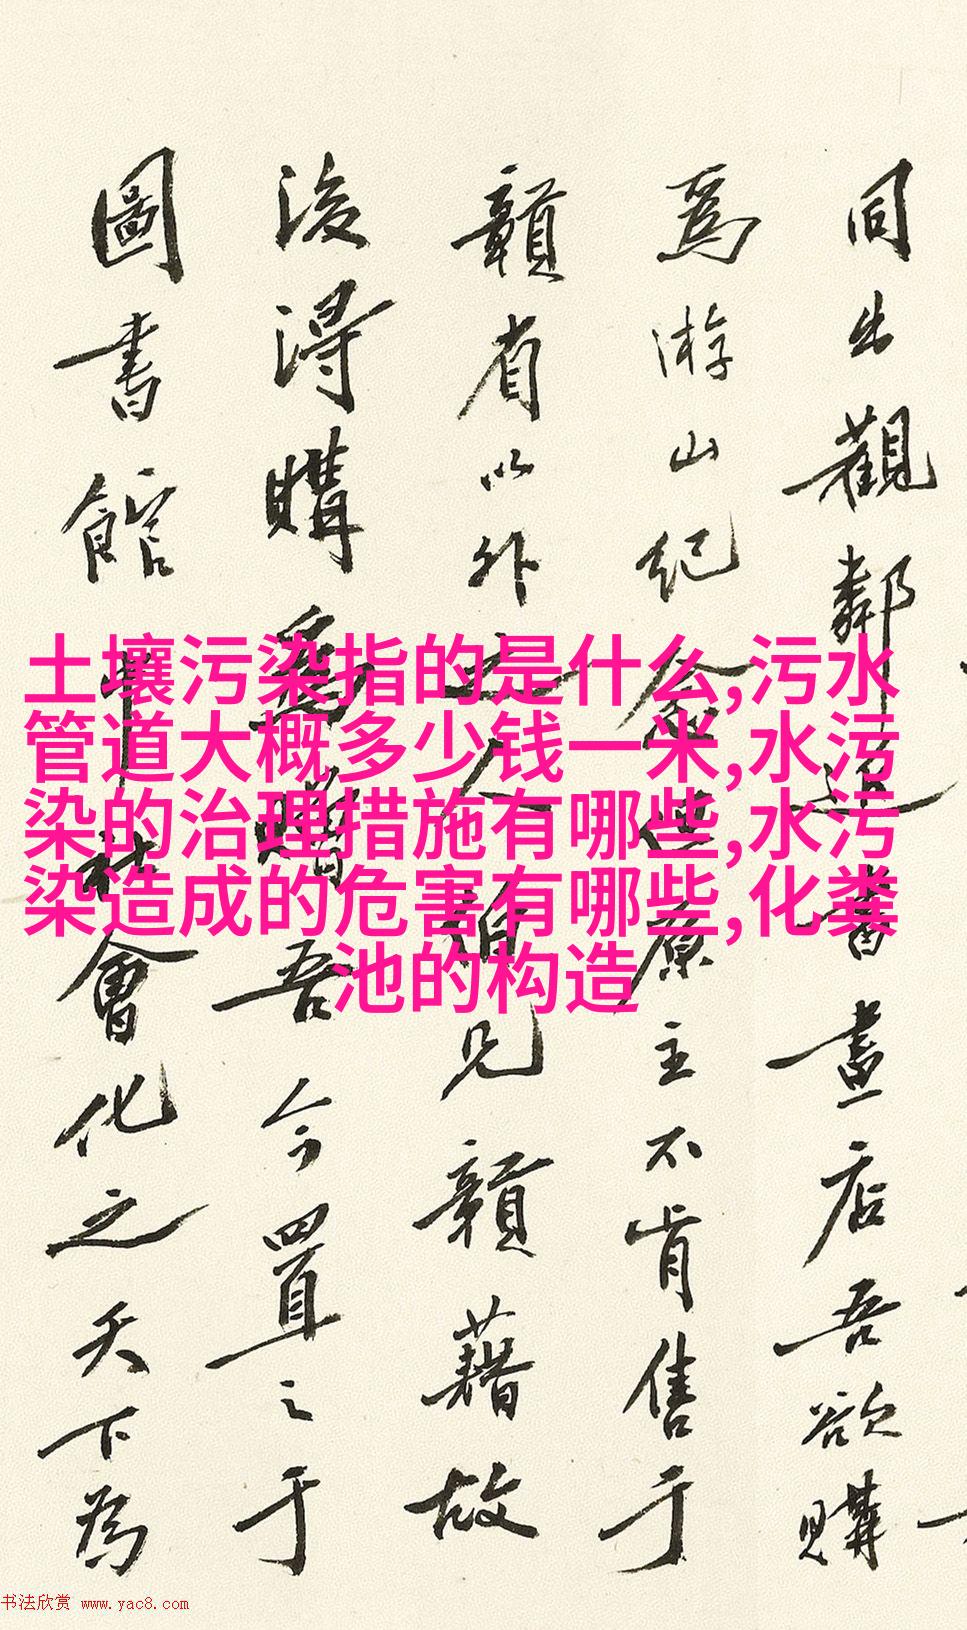 同出觀鄰書畫店吾欲購
為游山紀念原主不肯售于
贛省以外之人見贛藉故
後得購為贈吾今置之于
圖書館社會化之天下為
土壤污染指的是什么,污水
管道大概多少钱一米,水污
染的治理措施有哪些,水污
染造成的危害有哪些,化粪
池的构造
书法欣赏 www.yac8.com